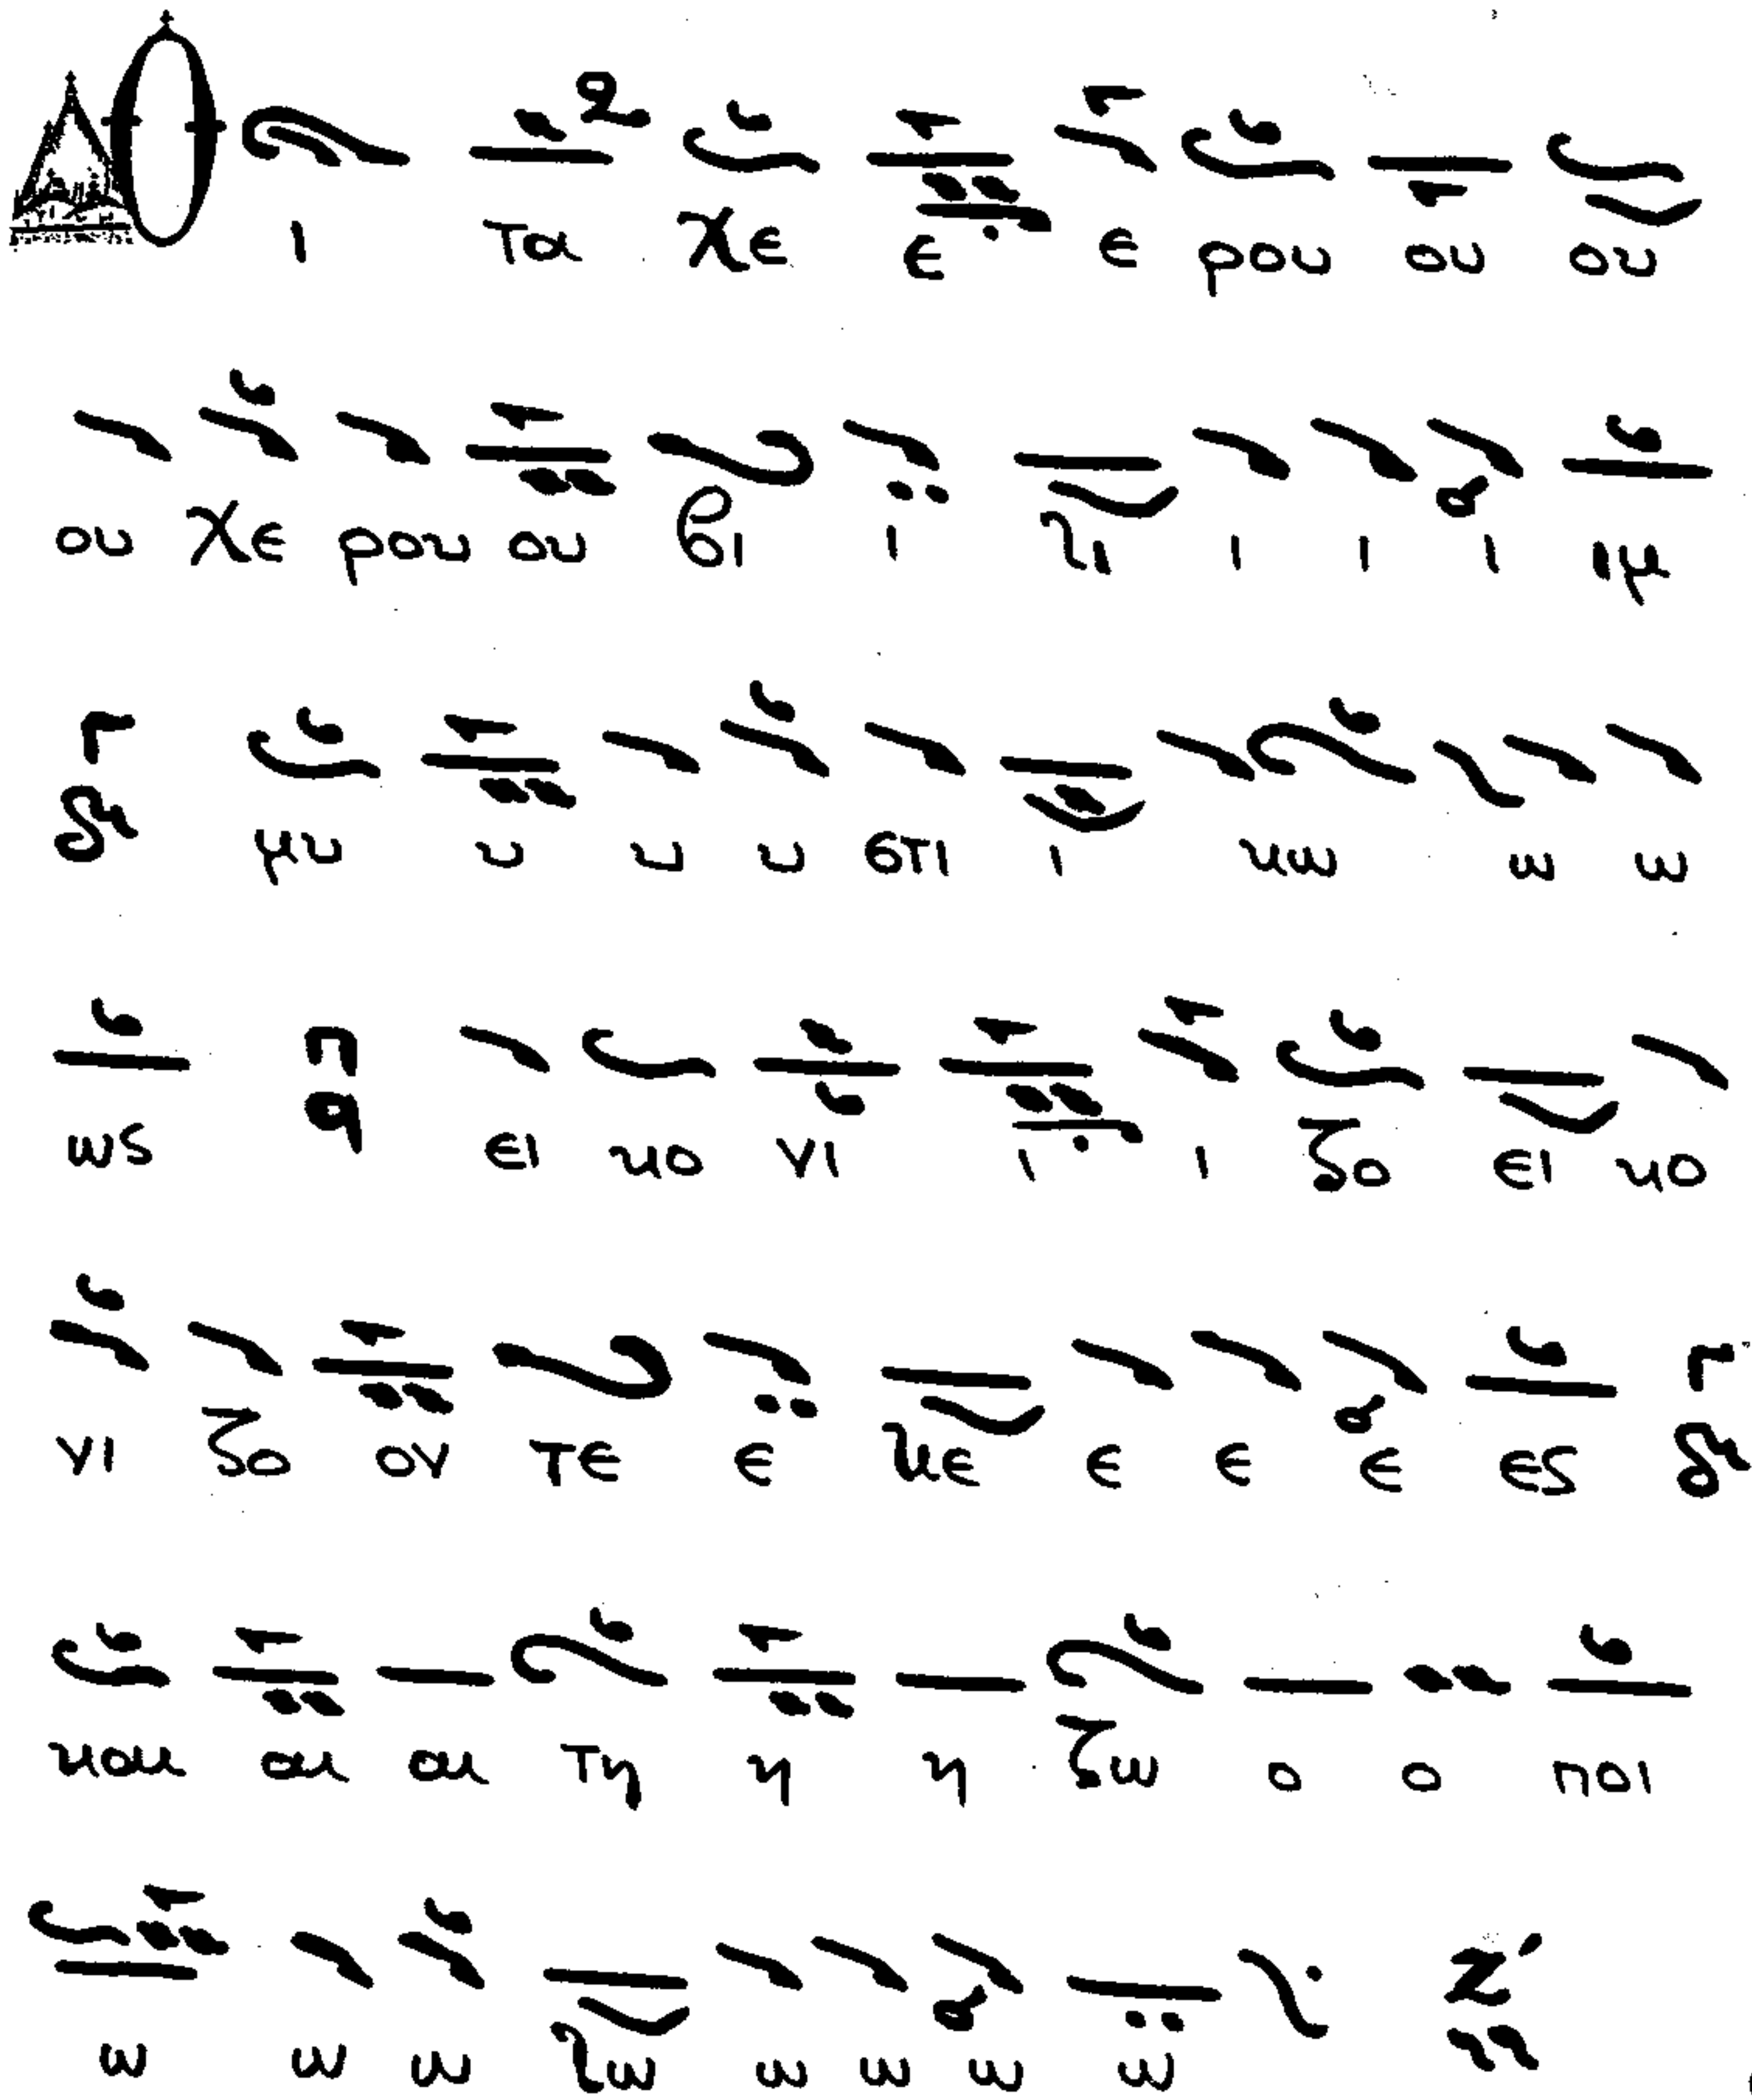 Οι τα χε ε ε ρου ου ου
ου χε ρου ου βι ι ι ι ι ι ιμ
δι μυ υ υ υ στι ι κω ω ω
ως πα ει κο νι ι ι ζο ει κο
νι ζο ον τε ε κε ε ε ε ες δι
και αι αι τη η η ζω ο ο ποι
ω ω ω ω ω ω ω ω Ζ´